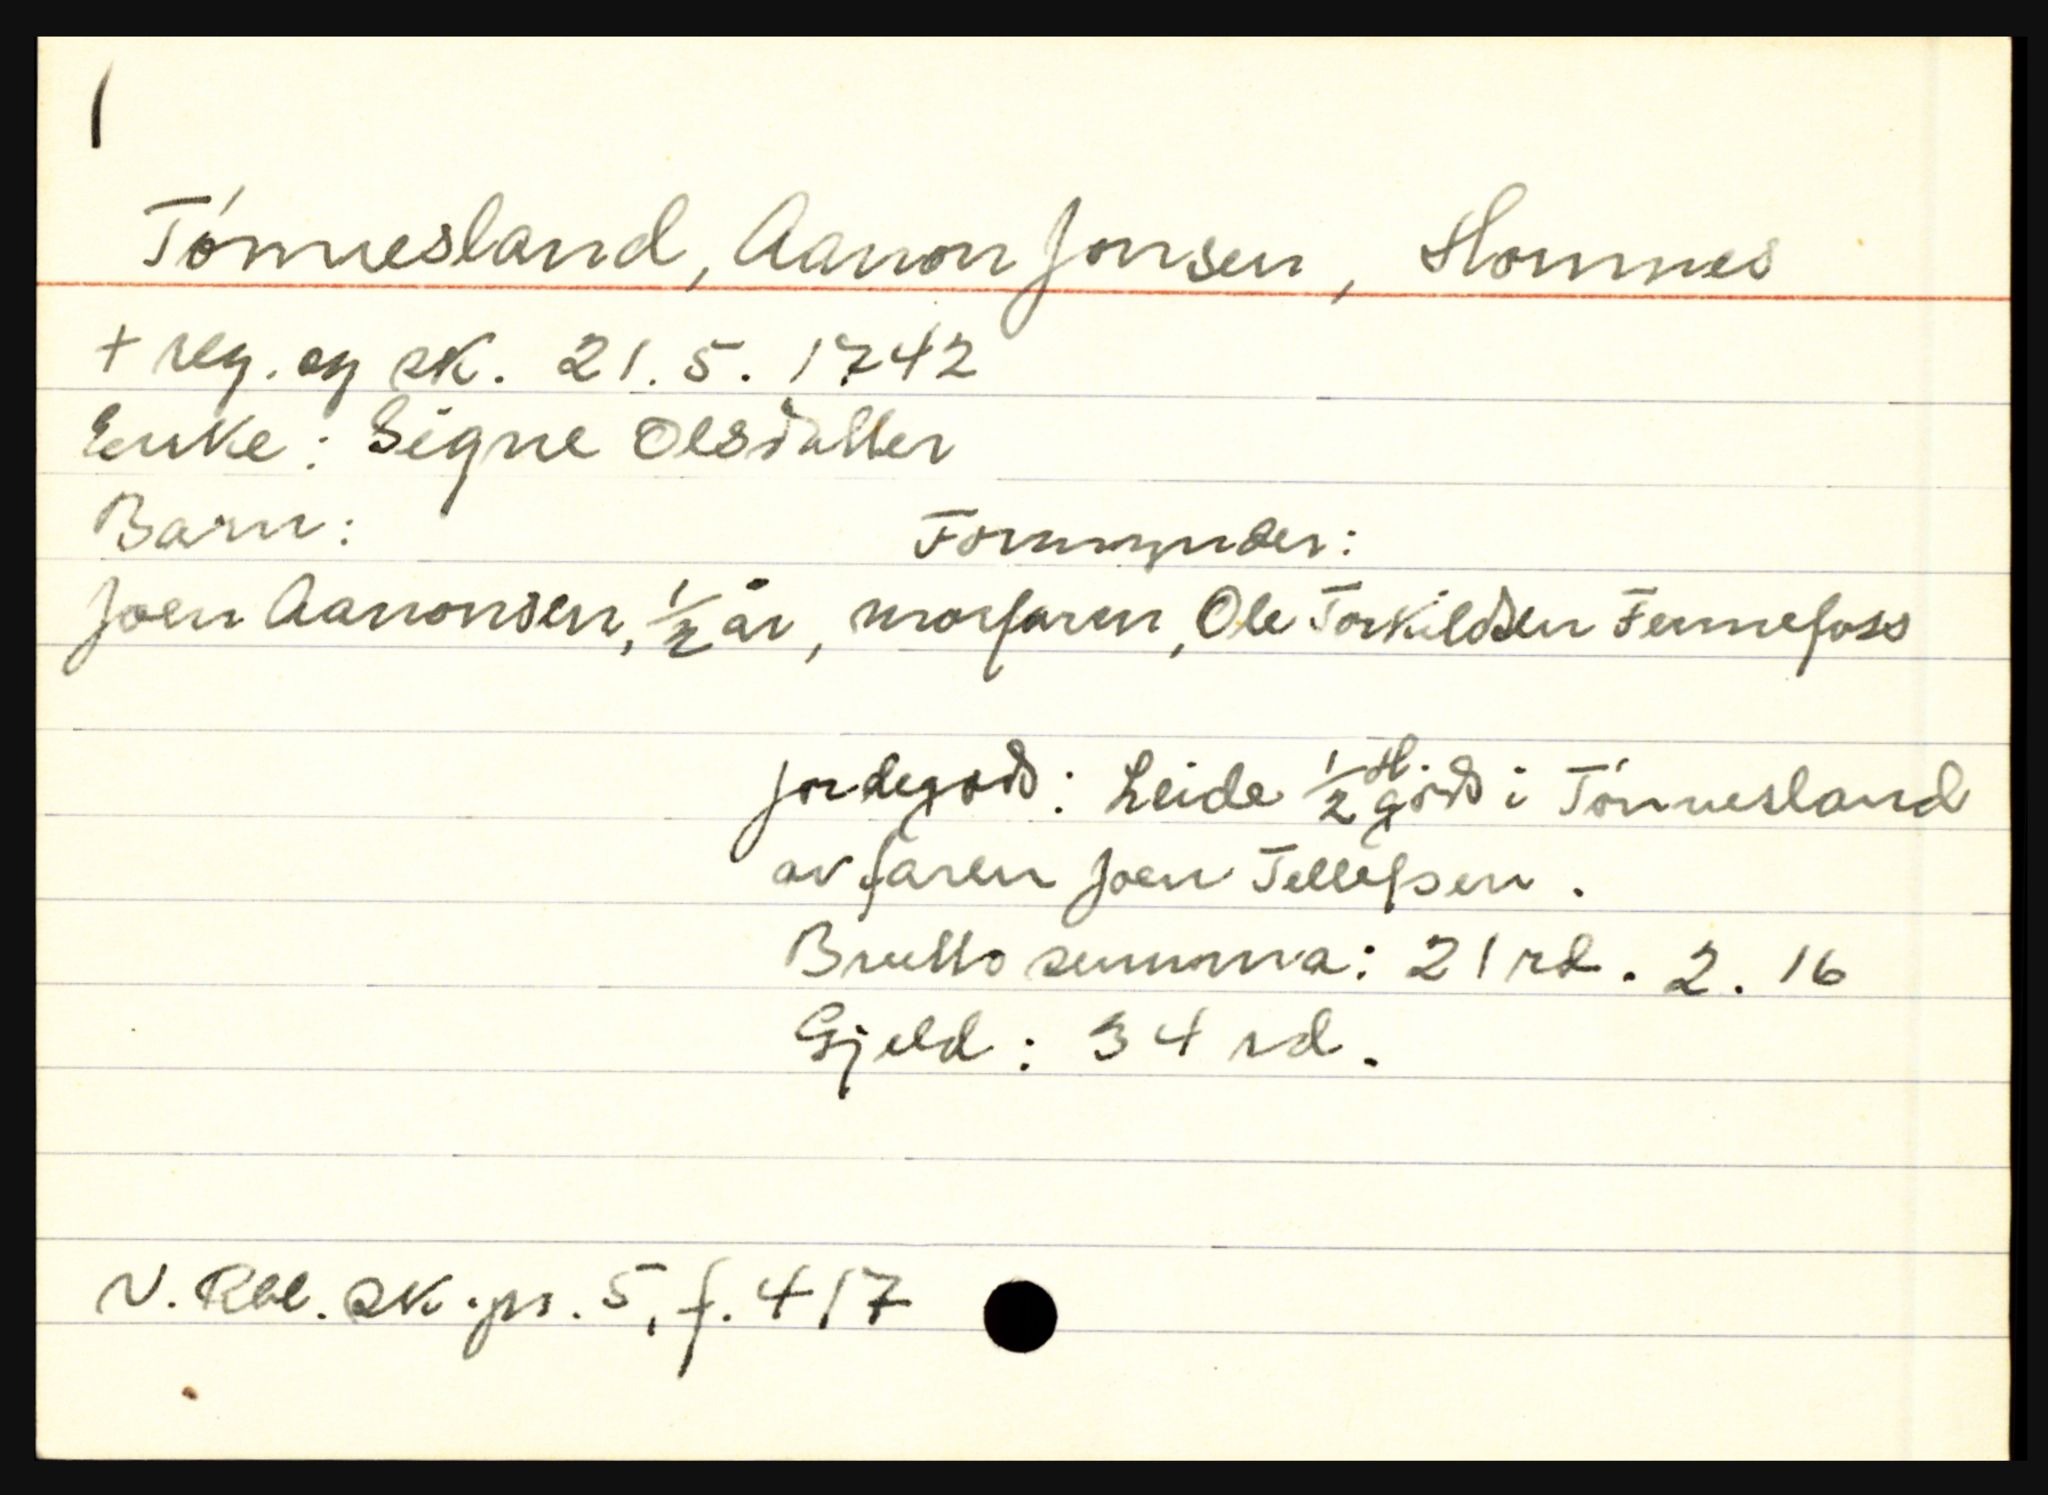 Tónnesland, Aanon Jonsen, Hornnes
+ reg. og sk. 21. 5. 1742
Enke: Signe Olsdatter
Barn: Formynder:
Joen Aanonsen, 1/2 år, morfaren, Ole Torkildsen Fennefoss
Jordegods: Leide 1/2 H. gods i Tónnesland
av faren Joen Tellefsen.
Brutto summa: 21 rd. 2. 16
Gjeld: 34 rd.
N. Rbl. sk. pr. 5, f. 417